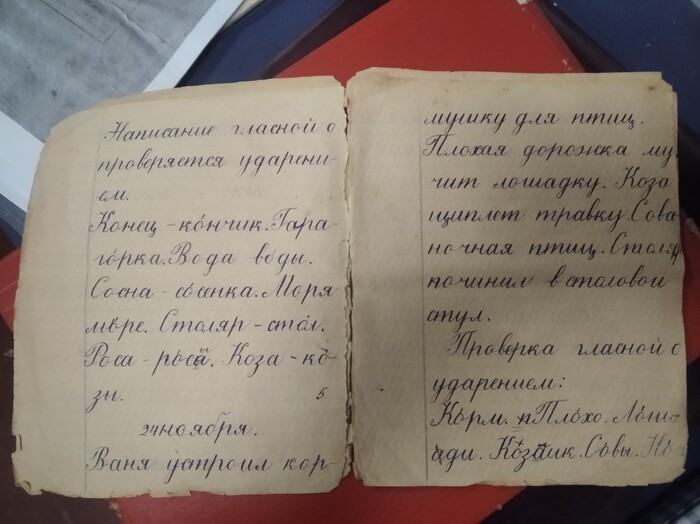 Написание гласной о
проверяется ударени-
ем.
Конец - ко́нчик. Гора-
го́рка. Вода - во́ды.
Сосна - со́сенка. Моря-
мо́ре. Столяр - сто́л.
Роса - ро́сы. Коза - ко́-
зы.
5.
24 ноября.
Ваня устроил кор-
мушку для птиц.
Плохая дорожка му-
чит лошадку. Коза
щиплет травку. Сова
ночная птиц. Столяр
починил в столовой
стул.
Проверка гласной о
ударением:
Ко́рм. Пло́хо. Ло́ш-
ади. Ко́злик. Со́вы. Но́-